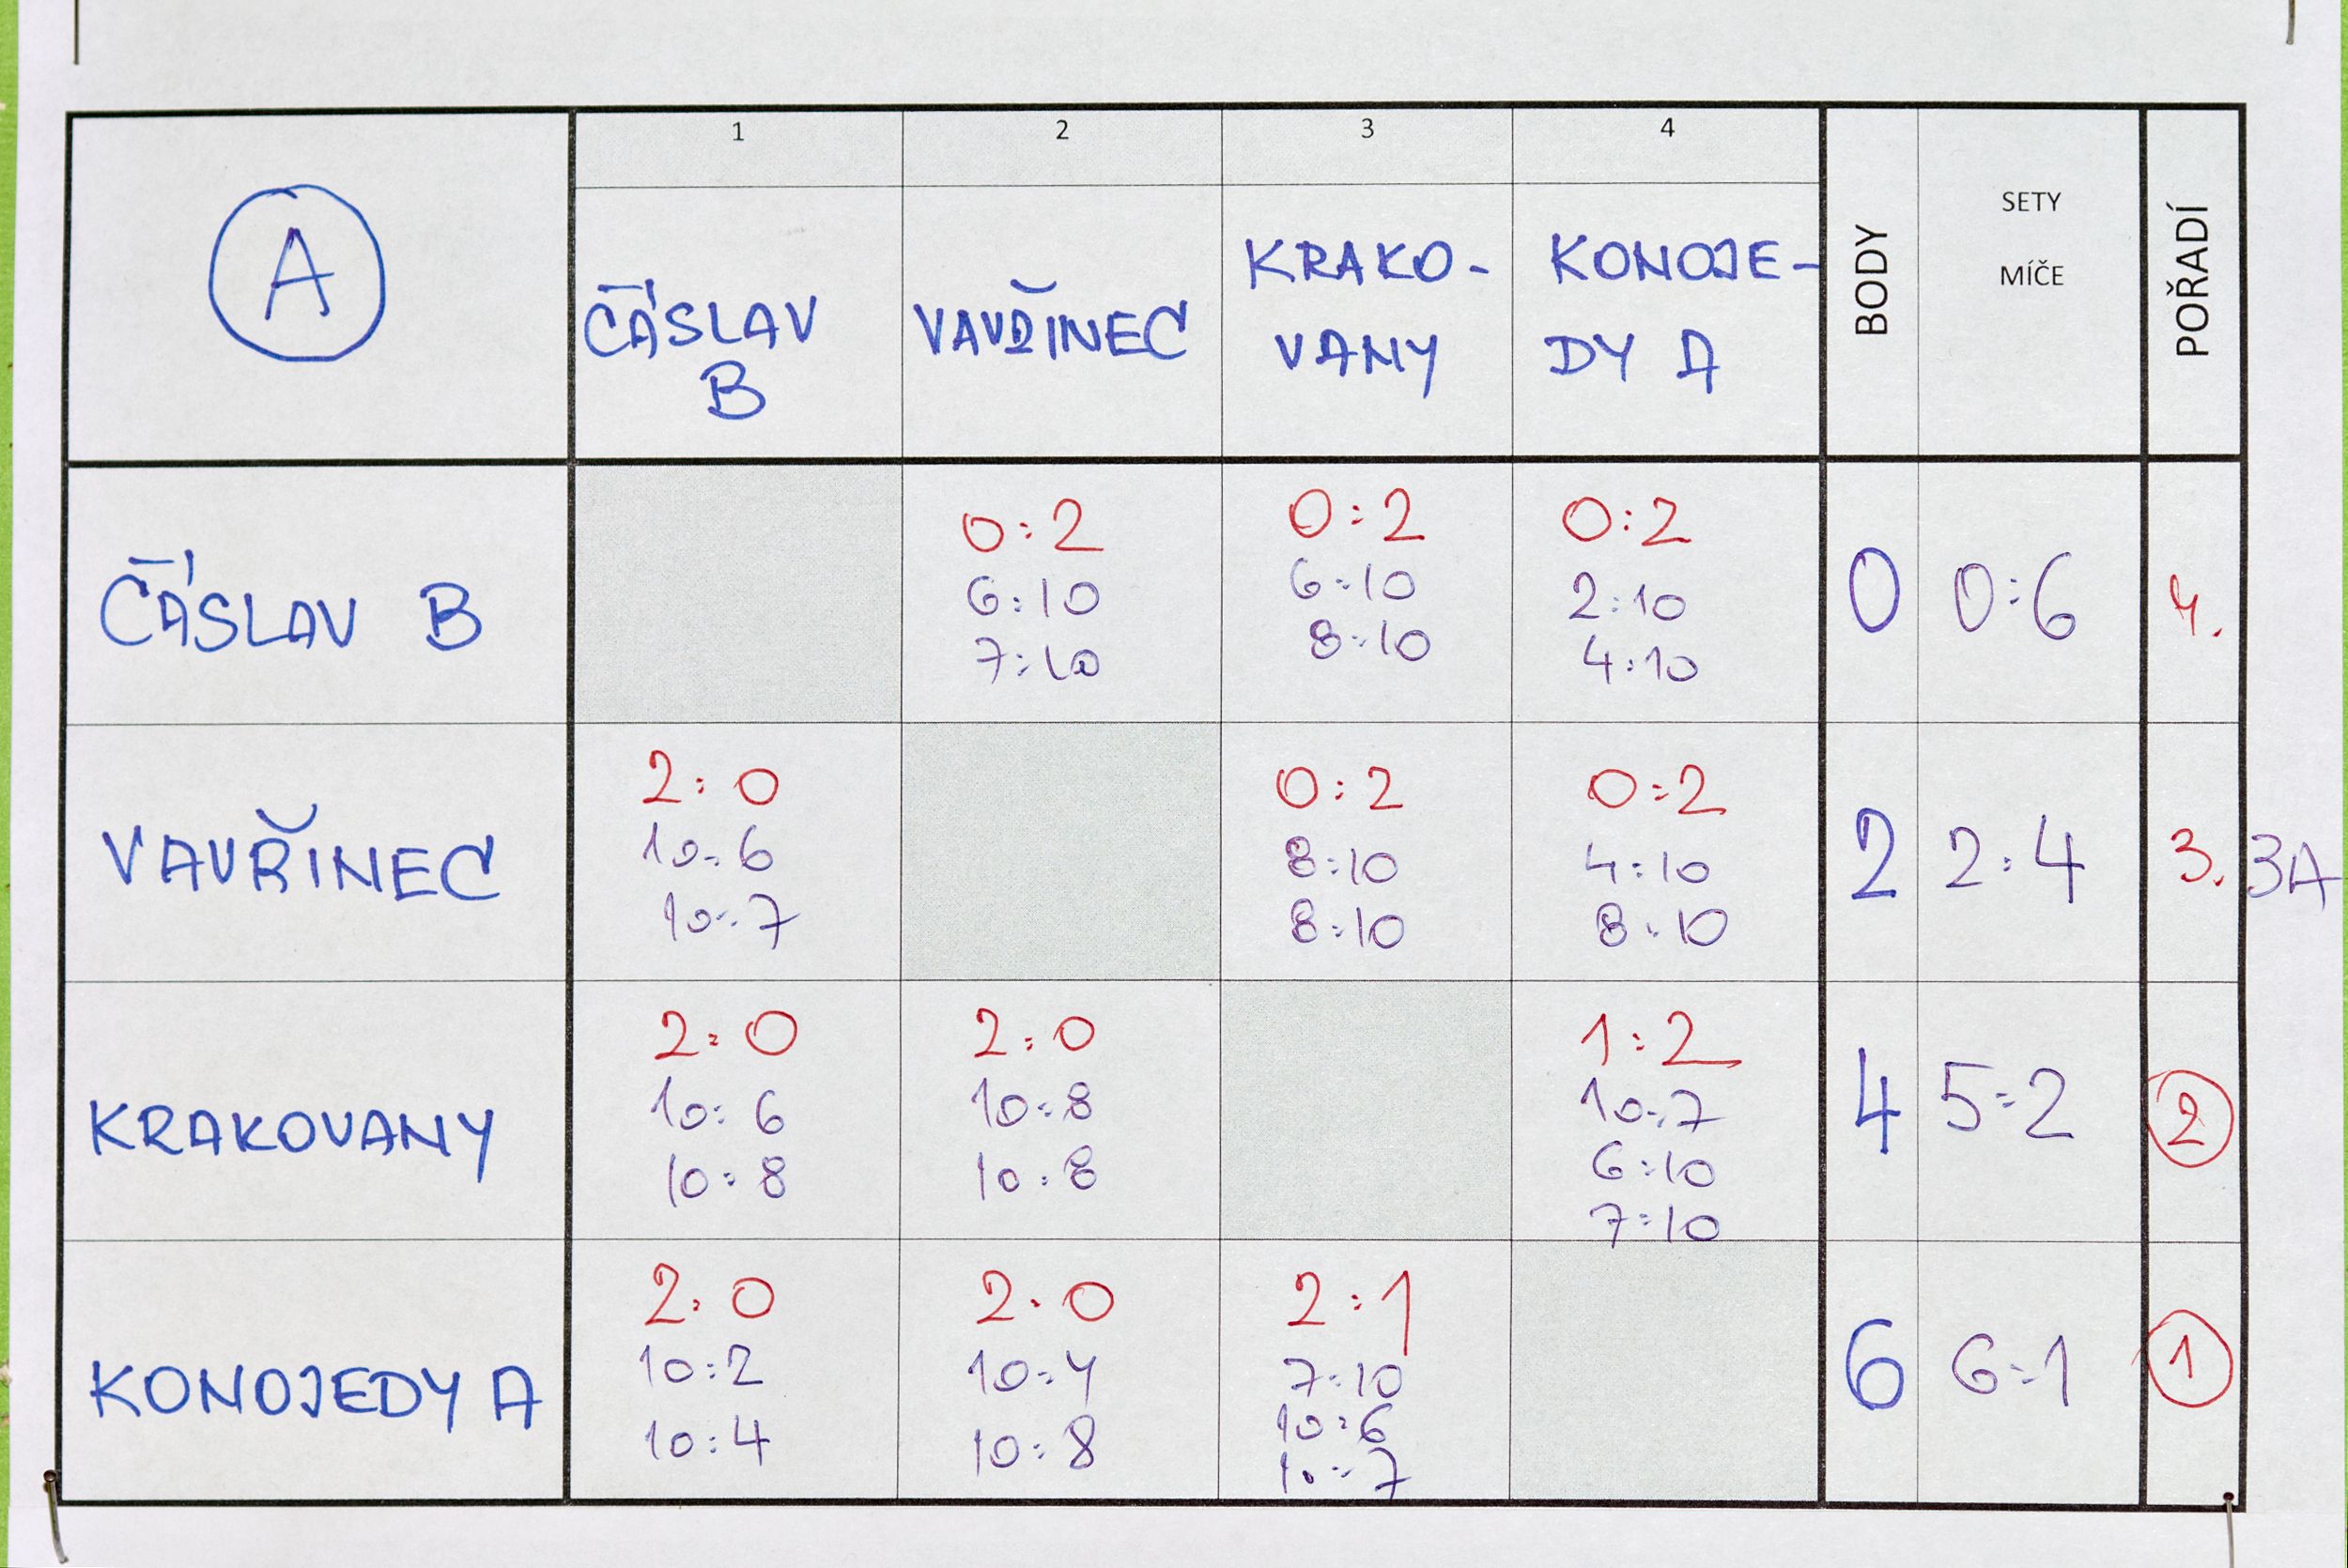 A
1 2 3 4
ČÁSLAV B
VAVŘINEC
KRAKO-
VANY
KONOJE-
DY A
BODY
SETY
MÍČE
POŘADÍ
ČÁSLAV B
0:2 0:2 0:2
6:10 6:10 2:10
7:10 8:10 4:10
0 0:6 4.
VAVŘINEC
2:0 0:2 0:2
10:6 8:10 4:10
10:7 8:10 8:10
2 2:4 3. 3A
KRAKOVANY
2:0 2:0 1:2
10:6 10:8 10:7
10:8 10:8 6:10
7:10
4 5:2 2
KONOJEDY A
2:0 2:0 2:1
10:2 10:4 7:10
10:4 10:8 10:6
10:7
6 6:1 1